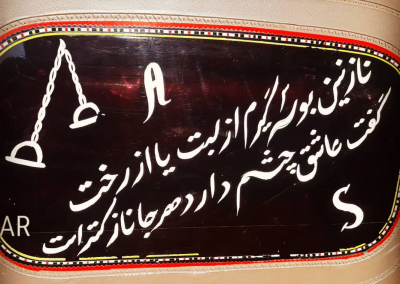 A
نازنین بوسه گیرم از لبت یا از رخت
گفت عاشق چشم دارد هرجا نازکتر است
S
AR